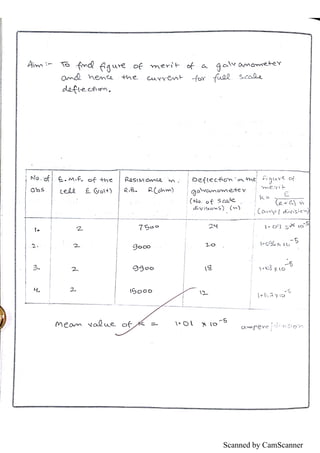 Aim :- To find figure of merit of a galvanometer
and hence the current for full scale
deflection.
No. of obs E.M.F. of the cell E (Volt) Resistance in R.B. R(ohm) Deflection in the galvanometer (No. of scale divisions) (n) Figure of merit k = E / (R+G) n (amp/division)
1. 2 7500 24
2. 2. 9000 20
3. 2. 9900 18
4. 2. 15000 12
Mean value of k = 1.01 x 10-5 ampere/division
Scanned by CamScanner